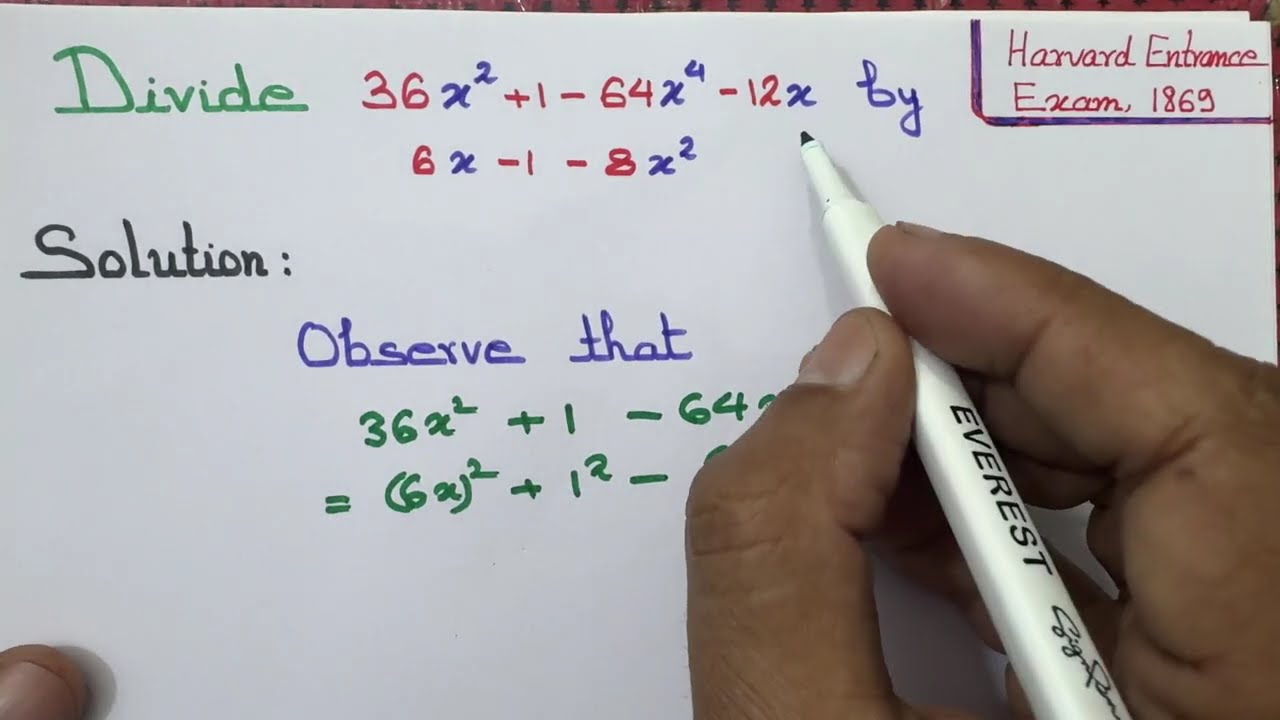 Divide 36x² + 1 - 64x⁴ - 12x by
6x - 1 - 8x²
Harvard Entrance
Exam, 1869
Solution:
Observe that
36x² + 1 - 64
= (6x)² + 1² -
EVEREST